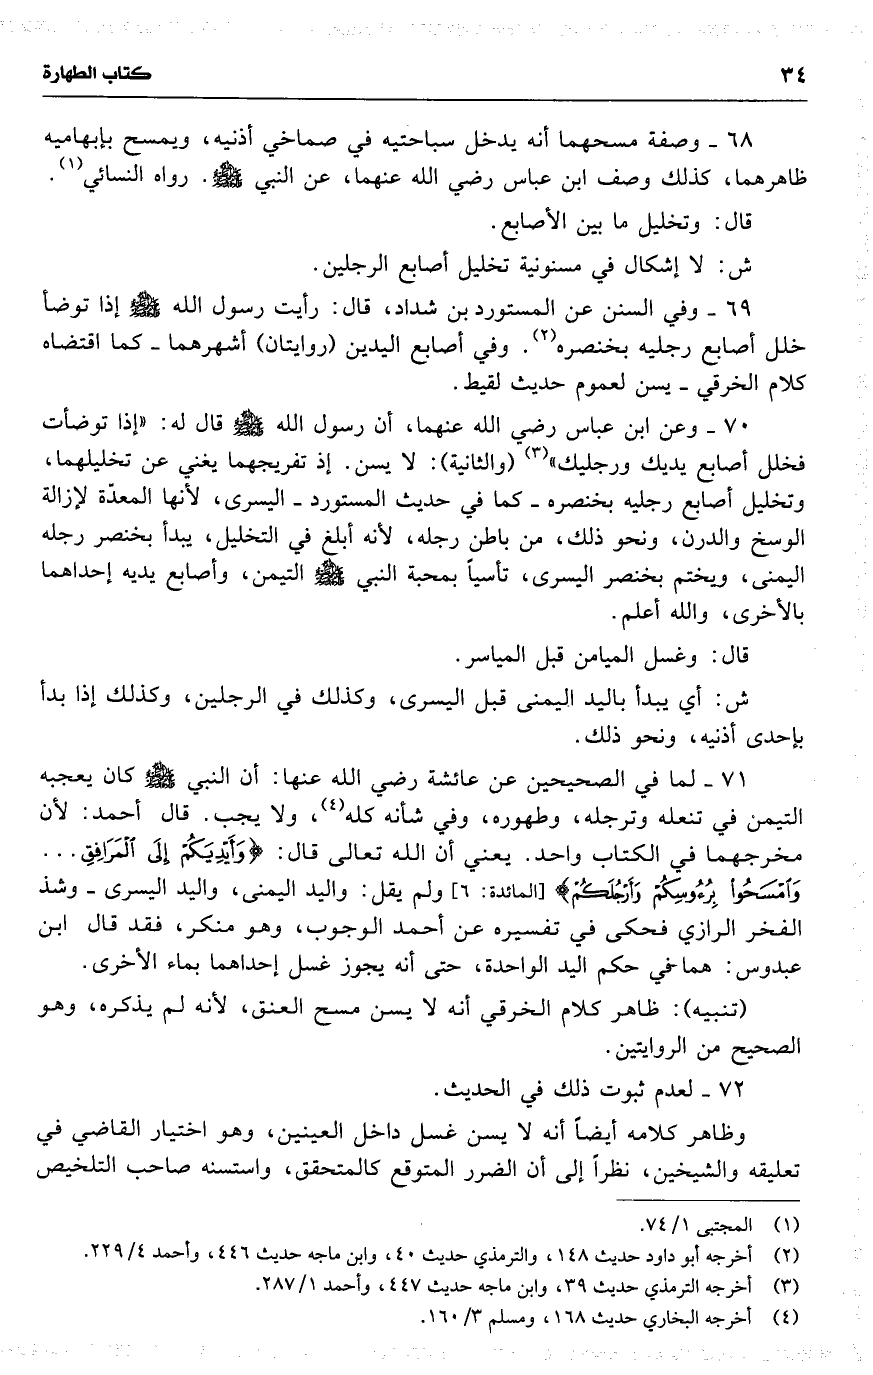 ٣٤ كتاب الطهارة
٦٨ ـ وصفة مسحهما أنه يدخل سباحتيه في صماخي أذنيه، ويمسح بإبهاميه
ظاهرهما، كذلك وصف ابن عباس رضي الله عنهما، عن النبي ﷺ. رواه النسائي(١).
قال: وتخليل ما بين الأصابع.
ش: لا إشكال في مسنونية تخليل أصابع الرجلين.
٦٩ ـ وفي السنن عن المستورد بن شداد، قال: رأيت رسول الله ﷺ إذا توضأ
خلل أصابع رجليه بخنصره(٢). وفي أصابع اليدين (روايتان) أشهرهما ـ كما اقتضاه
كلام الخرقي ـ يسن لعموم حديث لقيط.
٧٠ ـ وعن ابن عباس رضي الله عنهما، أن رسول الله ﷺ قال له: «إذا توضأت
فخلل أصابع يديك ورجليك»(٣) (والثانية): لا يسن. إذ تفريجهما يغني عن تخليلهما،
وتخليل أصابع رجليه بخنصره ـ كما في حديث المستورد ـ اليسرى، لأنها المعدّة لإزالة
الوسخ والدرن، ونحو ذلك، من باطن رجله، لأنه أبلغ في التخليل، يبدأ بخنصر رجله
اليمنى، ويختم بخنصر اليسرى، تأسياً بمحبة النبي ﷺ التيمن، وأصابع يديه إحداهما
بالأخرى، والله أعلم.
قال: وغسل الميامن قبل المياسر.
ش: أي يبدأ باليد اليمنى قبل اليسرى، وكذلك في الرجلين، وكذلك إذا بدأ
بإحدى أذنيه، ونحو ذلك.
٧١ ـ لما في الصحيحين عن عائشة رضي الله عنها: أن النبي ﷺ كان يعجبه
التيمن في تنعله وترجله، وطهوره، وفي شأنه كله(٤)، ولا يجب. قال أحمد: لأن
مخرجهما في الكتاب واحد. يعني أن الله تعالى قال: ﴿وَأَيْدِيَكُمْ إِلَى ٱلْمَرَافِقِ...
وَٱمْسَحُواْ بِرُءُوسِكُمْ وَأَرْجُلَكُمْ﴾ [المائدة: ٦] ولم يقل: واليد اليمنى، واليد اليسرى ـ وشذ
الفخر الرازي فحكى في تفسيره عن أحمد الوجوب، وهو منكر، فقد قال ابن
عبدوس: هما في حكم اليد الواحدة، حتى أنه يجوز غسل إحداهما بماء الأخرى.
(تنبيه): ظاهر كلام الخرقي أنه لا يسن مسح العنق، لأنه لم يذكره، وهو
الصحيح من الروايتين.
٧٢ ـ لعدم ثبوت ذلك في الحديث.
وظاهر كلامه أيضاً أنه لا يسن غسل داخل العينين، وهو اختيار القاضي في
تعليقه والشيخين، نظراً إلى أن الضرر المتوقع كالمتحقق، واستسنه صاحب التلخيص
(١) المجتبى ١/ ٧٤.
(٢) أخرجه أبو داود حديث ١٤٨، والترمذي حديث ٤٠، وابن ماجه حديث ٤٤٦، وأحمد ٤/ ٢٢٩.
(٣) أخرجه الترمذي حديث ٣٩، وابن ماجه حديث ٤٤٧، وأحمد ١/ ٢٨٧.
(٤) أخرجه البخاري حديث ١٦٨، ومسلم ٣/ ١٦٠.